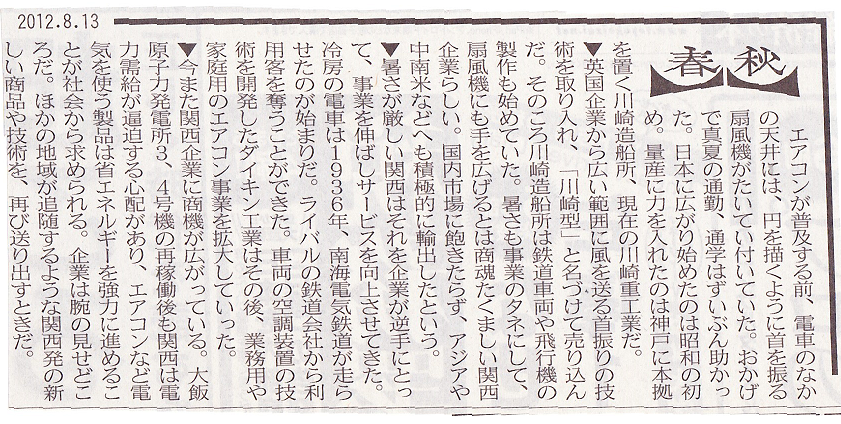 2012.8.13
春秋
エアコンが普及する前、電車のなか
の天井には、円を描くように首を振る
扇風機がたいてい付いていた。おかげ
で真夏の通勤、通学はずいぶん助かっ
た。日本に広がり始めたのは昭和の初
め。量産に力を入れたのは神戸に本拠
を置く川崎造船所、現在の川崎重工業だ。
▼英国企業から広い範囲に風を送る首振りの技
術を取り入れ、「川崎型」と名づけて売り込ん
だ。そのころ川崎造船所は鉄道車両や飛行機の
製作も始めていた。暑さも事業のタネにして、
扇風機にも手を広げるとは商魂たくましい関西
企業らしい。国内市場に飽きたらず、アジアや
中南米などへも積極的に輸出したという。
▼暑さが厳しい関西はそれを企業が逆手にとっ
て、事業を伸ばしサービスを向上させてきた。
冷房の電車は1936年、南海電気鉄道が走ら
せたのが始まりだ。ライバルの鉄道会社から利
用客を奪うことができた。車両の空調装置の技
術を開発したダイキン工業はその後、業務用や
家庭用のエアコン事業を拡大していった。
▼今また関西企業に商機が広がっている。大飯
原子力発電所3、4号機の再稼働後も関西は電
力需給が逼迫する心配があり、エアコンなど電
気を使う製品は省エネルギーを強力に進めるこ
とが社会から求められる。企業は腕の見せどこ
ろだ。ほかの地域が追随するような関西発の新
しい商品や技術を、再び送り出すときだ。